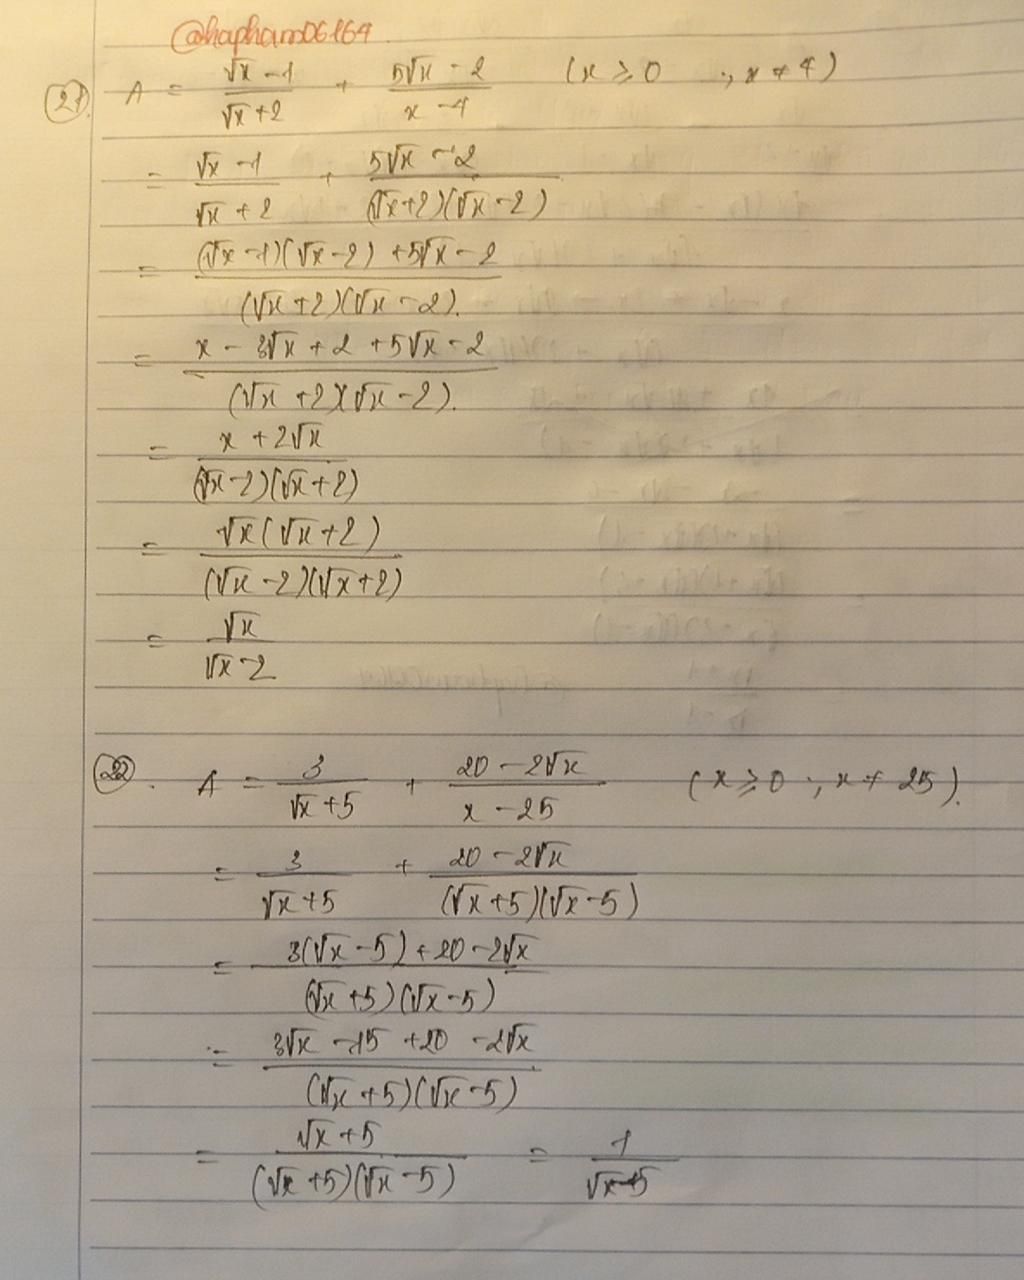 @hapham06164
(21). A = (√x - 1)/(√x + 2) + (5√x - 2)/(x - 4) (x ≥ 0 ; x ≠ 4)
= (√x - 1)/(√x + 2) + (5√x - 2)/((√x + 2)(√x - 2))
= ((√x - 1)(√x - 2) + 5√x - 2)/((√x + 2)(√x - 2)).
= (x - 3√x + 2 + 5√x - 2)/((√x + 2)(√x - 2)).
= (x + 2√x)/((√x - 2)(√x + 2))
= (√x(√x + 2))/((√x - 2)(√x + 2))
= √x/(√x - 2)
(22). A = 3/(√x + 5) + (20 - 2√x)/(x - 25) (x ≥ 0 ; x ≠ 25).
= 3/(√x + 5) + (20 - 2√x)/((√x + 5)(√x - 5))
= (3(√x - 5) + 20 - 2√x)/((√x + 5)(√x - 5))
= (3√x - 15 + 20 - 2√x)/((√x + 5)(√x - 5))
= (√x + 5)/((√x + 5)(√x - 5)) = 1/(√x - 5)